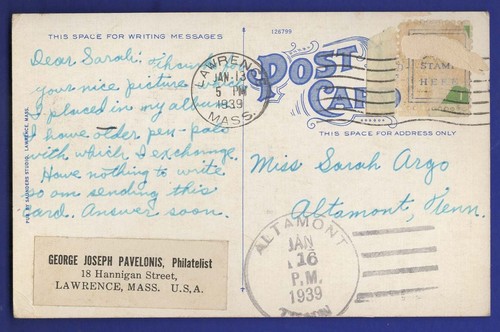 THIS SPACE FOR WRITING MESSAGES
126799
Dear Sarah: Thanks for
your nice picture which
I placed in my album.
I have older pen-pals
with which I exchange.
Have nothing to write
so am sending this
card. Answer soon.
GEORGE JOSEPH PAVELONIS, Philatelist
18 Hannigan Street,
LAWRENCE, MASS. U.S.A.
PUB. BY SAUNDERS STUDIO, LAWRENCE, MASS.
LAWRENCE
JAN 13
5 PM
1939
MASS.
POST
CARD
STAMP
HERE
THIS SPACE FOR ADDRESS ONLY
Miss Sarah Argo
Altamont, Tenn.
ALTAMONT
JAN
16
P.M.
1939
TENN